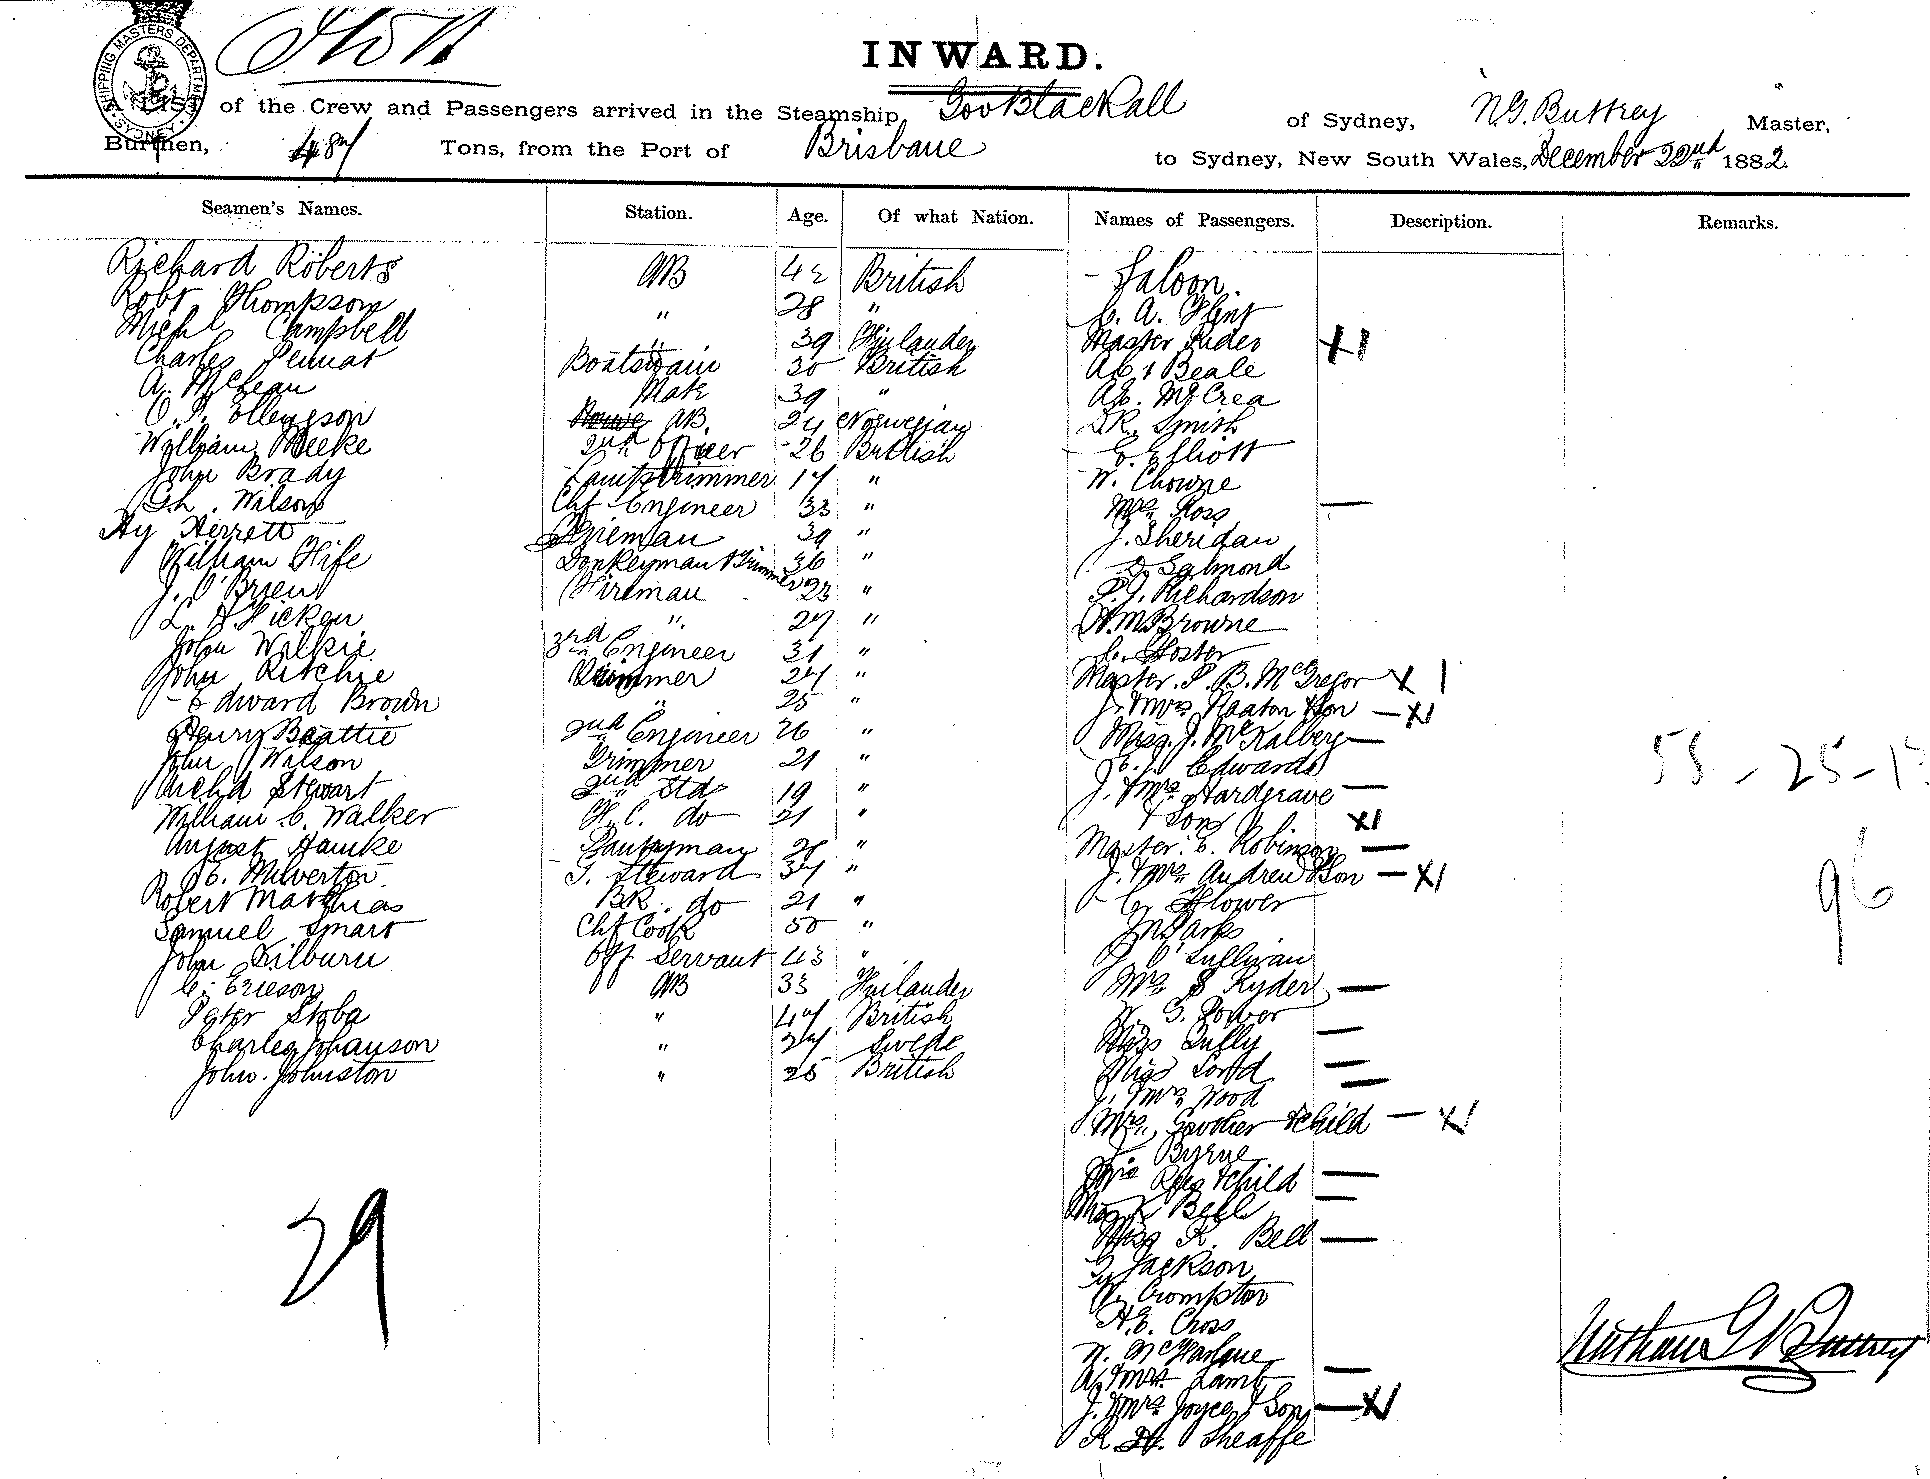 SHIPPING MASTERS DEPARTMENT
SYDNEY
INWARD.
A LIST of the Crew and Passengers arrived in the Steamship Gov Blackall of Sydney, N.G. Buttrey Master,
Burthen, 487 Tons, from the Port of Brisbane to Sydney, New South Wales, December 22nd 1882
Seamen's Names. Station. Age. Of what Nation. Names of Passengers. Description. Remarks.
Richard Roberts AB 42 British Saloon.
Robt Thompson " 28 " C. A. Flint
Michl Campbell " 39 Finlander Master Rider X1
Charles Pennat Boatswain 30 British Beale
A. McLean Mate 39 " McCrea
Ellengson AB. 24 Norwegian Smith
William Meeke 2nd Officer 26 British E. Elliott
John Brady Lamptrimmer 17 " W. Chowne
Wilson Chf Engineer 33 " Mrs Ross —
Hy Herrett Fireman 39 " J. Sheridan
William Fife Donkeyman & Trimmer 36 " Salmond
J. O'Brien Fireman 23 " Richardson
L. Hicken " 27 " Browne
John Wilkie 3rd Engineer 31 " C. Foster
John Ritchie Trimmer 27 " Master P. B. McGregor X 1
Edward Brown " 25 " J. & Mrs Naaton & Son — X1
Henry Beattie 2nd Engineer 26 " Miss J. —
John Wilson Trimmer 21 " Edwards
Richd Stewart 2nd Std 19 " J. & Mrs Hardgrave —
William C. Walker F. C. do 21 " & Son X1
August Hamke Pantryman " Master E. Robinson —
Milverton S. Steward 37 " J. & Mrs Andrew & Son — X1
Robert Matthias BR. do 21 " Flower
Samuel Smart Chf Cook 50 " Parks
John Kilburn Off Servant 43 " J. O'Sullivan
C. Ericson AB 33 Finlander Mrs S Ryder —
Peter Stoba " 47 British W. G. Power
Charles Johanson " 27 Swede Miss Tully —
John Johnston " 25 British Miss Lord —
J. & Mrs Wood —
Mrs & Child — X1
Byrne
Mrs & Child —
Bell —
Miss K. Bell —
Jackson
Crompton
H.E. Cross
W. McFarlane
A. & Mrs Lamb —
J. & Mrs Joyce & Son — X1
Sheaffe
96
29
Nathan G Buttrey